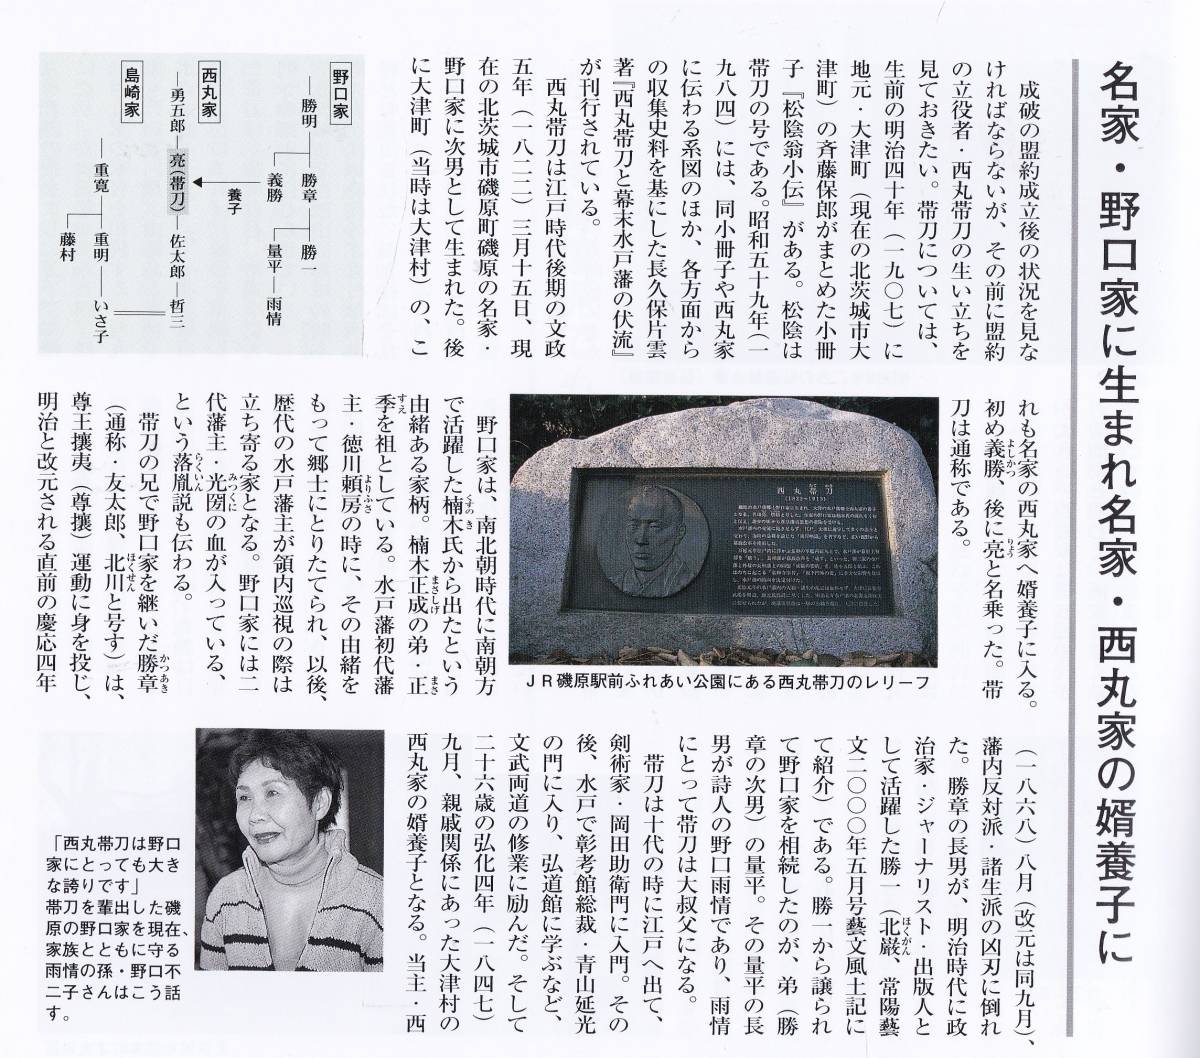 名家・野口家に生まれ名家・西丸家の婿養子に
成破の盟約成立後の状況を見な
ければならないが、その前に盟約
の立役者・西丸帯刀の生い立ちを
見ておきたい。帯刀については、
生前の明治四十年（一九〇七）に
地元・大津町（現在の北茨城市大
津町）の斉藤保郎がまとめた小冊
子『松陰翁小伝』がある。松陰は
帯刀の号である。昭和五十九年（一
九八四）には、同小冊子や西丸家
に伝わる系図のほか、各方面から
の収集史料を基にした長久保片雲
著『西丸帯刀と幕末水戸藩の伏流』
が刊行されている。
西丸帯刀は江戸時代後期の文政
五年（一八二二）三月十五日、現
在の北茨城市磯原町磯原の名家・
野口家に次男として生まれた。後
に大津町（当時は大津村）の、こ
野口家
勝明
勝章
勝一
義勝
量平
雨情
養子
西丸家
勇五郎
亮（帯刀）
佐太郎
哲三
島崎家
重寛
重明
いさ子
藤村
れも名家の西丸家へ婿養子に入る。
初め義勝、後に亮と名乗った。帯
刀は通称である。
西丸帯刀
(1822〜1913)
JR磯原駅前ふれあい公園にある西丸帯刀のレリーフ
野口家は、南北朝時代に南朝方
で活躍した楠木氏から出たという
由緒ある家柄。楠木正成の弟・正
季を祖としている。水戸藩初代藩
主・徳川頼房の時に、その由緒を
もって郷士にとりたてられ、以後、
歴代の水戸藩主が領内巡視の際は
立ち寄る家となる。野口家には二
代藩主・光圀の血が入っている、
という落胤説も伝わる。
帯刀の兄で野口家を継いだ勝章
（通称・友太郎、北川と号す）は、
尊王攘夷（尊攘）運動に身を投じ、
明治と改元される直前の慶応四年
（一八六八）八月（改元は同九月）、
藩内反対派・諸生派の凶刃に倒れ
た。勝章の長男が、明治時代に政
治家・ジャーナリスト・出版人と
して活躍した勝一（北巌、常陽藝
文二〇〇〇年五月号藝文風土記に
て紹介）である。勝一から譲られ
て野口家を相続したのが、弟（勝
章の次男）の量平。その量平の長
男が詩人の野口雨情であり、雨情
にとって帯刀は大叔父になる。
帯刀は十代の時に江戸へ出て、
剣術家・岡田助衛門に入門。その
後、水戸で彰考館総裁・青山延光
の門に入り、弘道館に学ぶなど、
文武両道の修業に励んだ。そして
二十六歳の弘化四年（一八四七）
九月、親戚関係にあった大津村の
西丸家の婿養子となる。当主・西
「西丸帯刀は野口
家にとっても大き
な誇りです」
帯刀を輩出した磯
原の野口家を現在、
家族とともに守る
雨情の孫・野口不
二子さんはこう話
す。